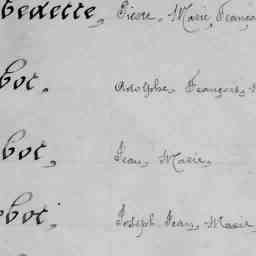 bexette, Pierre, Marie, Françoi
bot, Adolphe, François,
bot, Jean, Marie,
bot, Joseph, Jean, Marie,